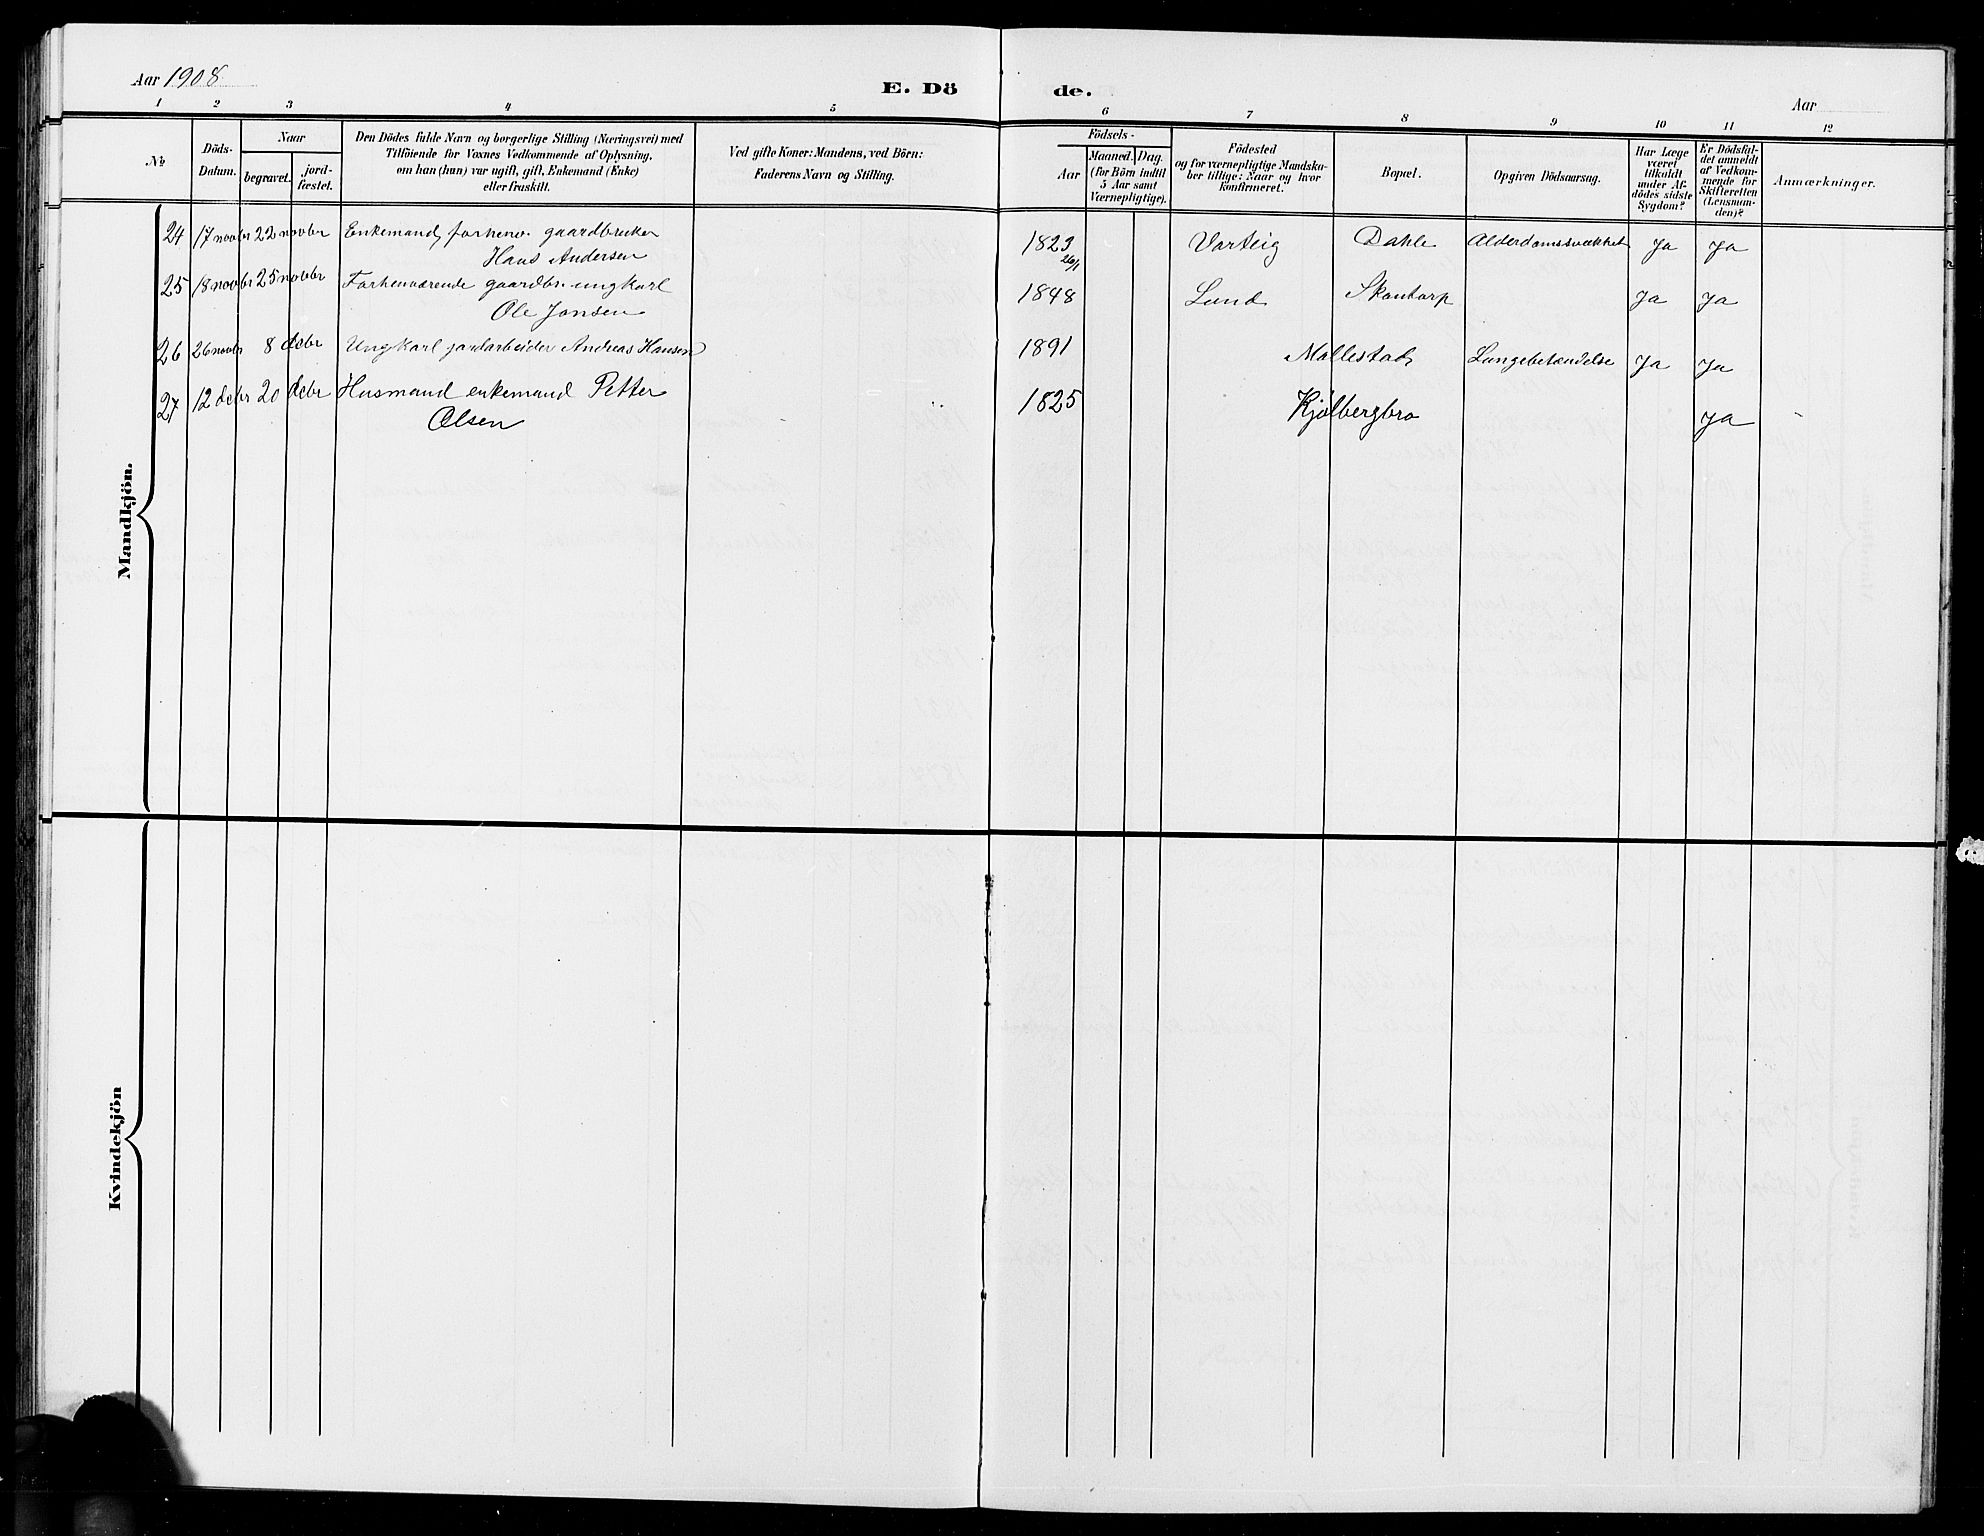 Aar 1908
E. Döde.
Aar
1 2 3 4 5 6 7 8 9 10 11 12
No
Döds-
Datum.
Naar
begravet.
jord-
fæstet.
Den Dödes fulde Navn og borgerlige Stilling (Næringsvei) med
Tilföiende for Voxnes Vedkommende af Oplysning,
om han (hun) var ugift, gift, Enkemand (Enke)
eller fraskilt.
Ved gifte Koner: Mandens, ved Börn:
Faderens Navn og Stilling.
Födsels-
Aar
Maaned. Dag.
(for Börn indtil
5 Aar samt
Værnepligtige).
Födested
og for værnepligtige Mandska-
ber tillige: Naar og hvor
konfirmeret.
Bopæl.
Opgiven Dödsaarsag.
Har Læge
været
tilkaldt
under Af-
dödes sidste
Sygdom?
Er Dödsfal-
det anmeldt
af Vedkom-
mende for
Skifteretten
(Lensman-
den)?
Anmærkninger.
Mandkjön.
24 17 novbr 22 novbr Enkemand, forhenv. gaardbruker 1823 Varteig Dahle Alderdomssvækket Ja Ja
Hans Andersen 26/1
25 18 novbr 25 novbr Forhenværende gaardbr. ungkarl 1848 Lund Skontorp Ja Ja
Ole Jonsen
26 26 novbr 8 decbr Ungkarl jordarbeider Andreas Hansen 1891 Mallestad Lungebetændelse Ja Ja
27 12 decbr 20 decbr Husmand enkemand Petter 1825 Kjølbergbro Ja
Olsen
Kvindekjön